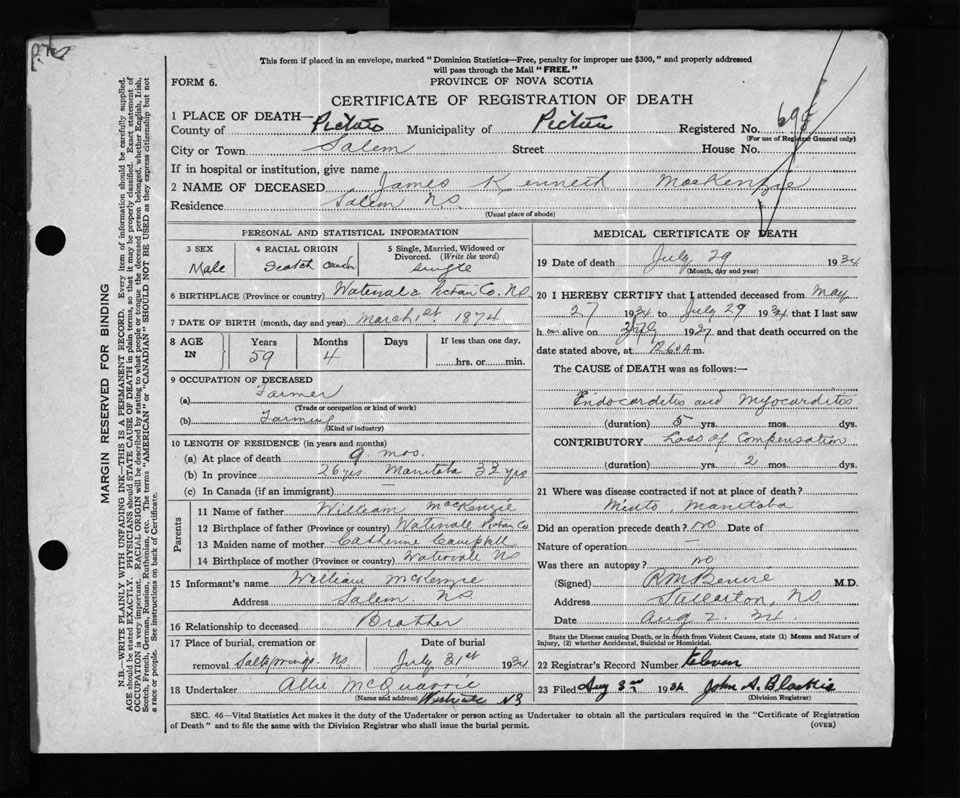 This form if placed in an envelope, marked "Dominion Statistics—Free, penalty for improper use $300," and properly addressed
will pass through the Mail "FREE."
FORM 6.
PROVINCE OF NOVA SCOTIA
CERTIFICATE OF REGISTRATION OF DEATH
1 PLACE OF DEATH—
County of Pictou Municipality of Pictou Registered No.
(For use of Registrar General only)
City or Town Salem Street House No.
If in hospital or institution, give name
2 NAME OF DECEASED James Kenneth MacKenzie
Residence Salem N.S.
(Usual place of abode)
PERSONAL AND STATISTICAL INFORMATION
3 SEX
Male
4 RACIAL ORIGIN
Scotch
5 Single, Married, Widowed or Divorced. (Write the word)
single
6 BIRTHPLACE (Province or country) Pictou Co. N.S.
7 DATE OF BIRTH (month, day and year) March 1st 1874
8 AGE IN
Years Months Days If less than one day,
59 4 hrs. or min.
9 OCCUPATION OF DECEASED
(a) Farmer
(Trade or occupation or kind of work)
(b) Farming
(Kind of industry)
10 LENGTH OF RESIDENCE (in years and months)
(a) At place of death 9 mos.
(b) In province 26 yrs Manitoba 32 yrs
(c) In Canada (if an immigrant) —
Parents
11 Name of father William MacKenzie
12 Birthplace of father (Province or country) Pictou Co
13 Maiden name of mother Catherine Campbell
14 Birthplace of mother (Province or country) NS
15 Informant's name William McKenzie
Address Salem. N.S.
16 Relationship to deceased Brother
17 Place of burial, cremation or removal Saltsprings. N.S.
Date of burial July 31st 1934
18 Undertaker Allie McQuarrie
(Name and address) Westville NS
MEDICAL CERTIFICATE OF DEATH
19 Date of death July 29 1934
(Month, day and year)
20 I HEREBY CERTIFY that I attended deceased from May
27 1934 to July 29 1934 that I last saw
h alive on 19 and that death occurred on
date stated above, at m.
The CAUSE of DEATH was as follows:—
Endocarditis and Myocarditis
(duration) 5 yrs. mos. dys.
CONTRIBUTORY Loss of Compensation
(duration) yrs. 2 mos. dys.
21 Where was disease contracted if not at place of death?
Minto, Manitoba
Did an operation precede death? no Date of
Nature of operation —
Was there an autopsy? no
(Signed) M.D.
Address Stellarton, NS
Date Aug 2. 34
State the Disease causing Death, or in death from Violent Causes, state (1) Means and Nature of
Injury, (2) whether Accidental, Suicidal or Homicidal.
22 Registrar's Record Number Eleven
23 Filed Aug 3rd 1934 John S. Blaikie
(Division Registrar)
SEC. 46—Vital Statistics Act makes it the duty of the Undertaker or person acting as Undertaker to obtain all the particulars required in the "Certificate of Registration
of Death" and to file the same with the Division Registrar who shall issue the burial permit.
(OVER)
MARGIN RESERVED FOR BINDING
N.B.—WRITE PLAINLY WITH UNFADING INK—THIS IS A PERMANENT RECORD. Every item of information should be carefully supplied.
AGE should be stated EXACTLY. PHYSICIANS should STATE CAUSE OF DEATH in plain terms, so that it may be properly classified. Exact statement of
OCCUPATION is very important. RACIAL ORIGIN will be described by stating to what people or tongue the deceased person belonged, whether English, Irish,
Scotch, French, German, Russian, Ruthenian, etc. The terms "AMERICAN" or "CANADIAN" SHOULD NOT BE USED as they express citizenship but not
a race or people. See instructions on back of Certificate.